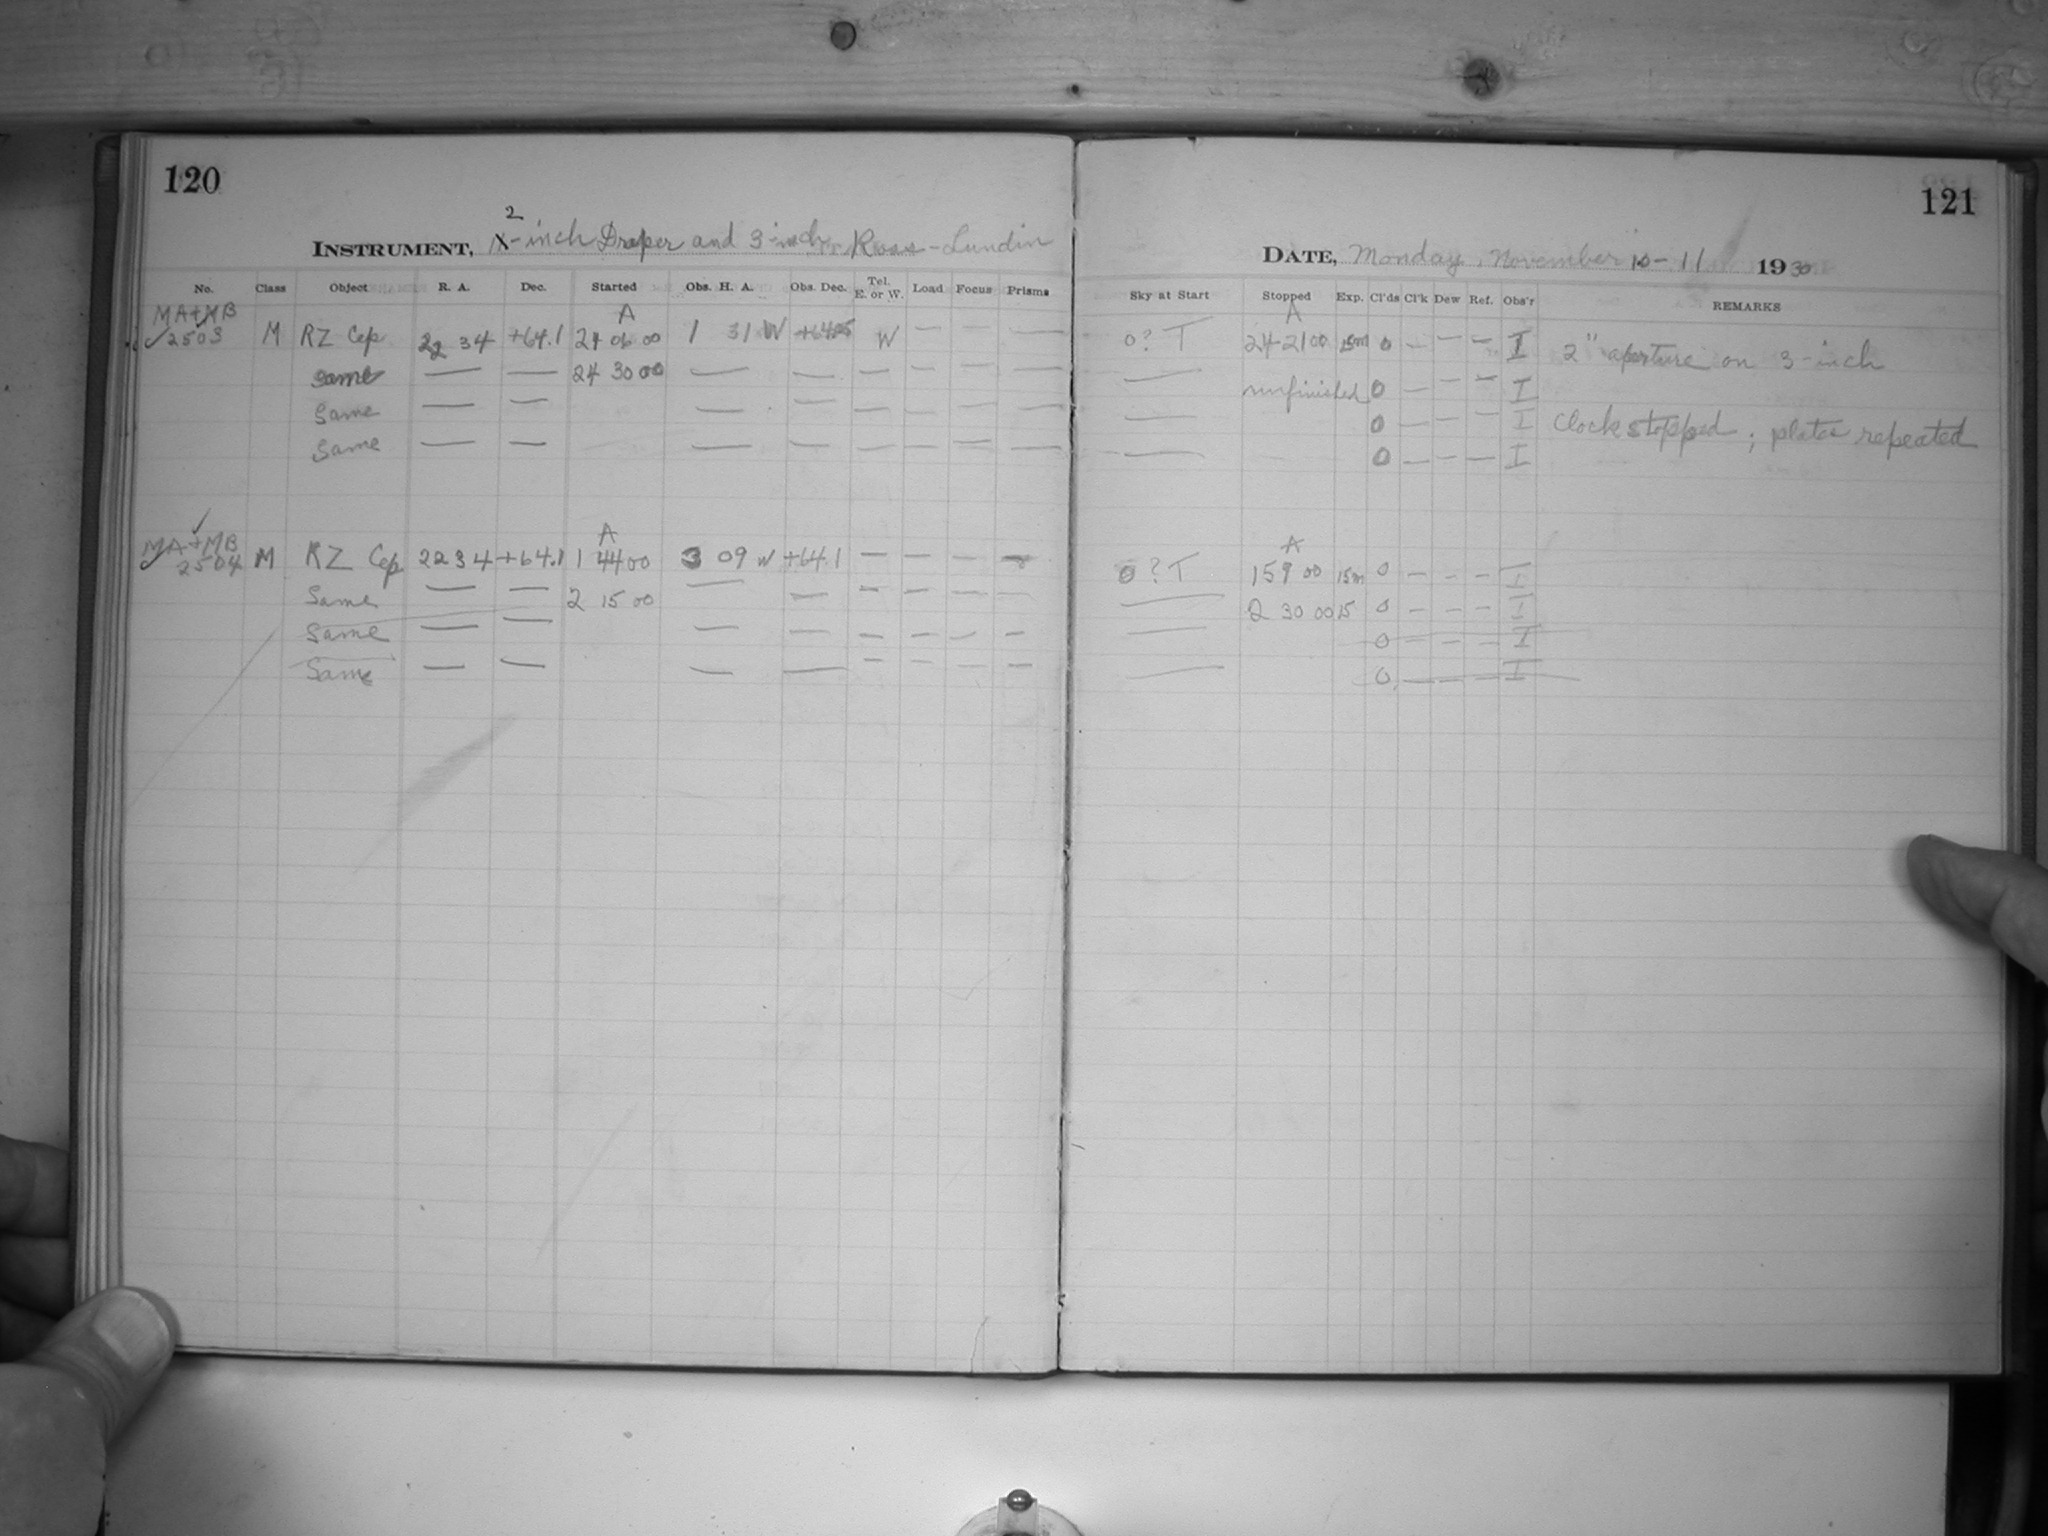 120
2
INSTRUMENT, X-inch Draper and 3-inch Ross-Lundin
No. Class Object R. A. Dec. Started Obs. H. A. Obs. Dec. Tel. E. or W. Load Focus Prisms
MA+MB A
2503 M RZ Cep 22 34 +64.1 24 06 00 1 31 W W — — —
same — — 24 30 00 — — — — — —
Same — — — — — — — —
Same — — — — — — — —
MA+MB A
2504 M RZ Cep 22 34 +64.1 1 44 00 3 09 W +64.1 — — — —
Same — — 2 15 00 — — — — — —
Same — — — — — — — —
Same — — — — — — — —
121
DATE, Monday, November 10-11 1930
Sky at Start Stopped Exp. Cl'ds Cl'k Dew Ref. Obs'r REMARKS
A
0? T 24 21 00 15m 0 — — — I 2" aperture on 3-inch
— unfinished 0 — — — I
— 0 — — — I Clock stopped; plates repeated
— 0 — — — I
A
0? T 1 59 00 15m 0 — — — I
— 2 30 00 15 0 — — — I
— 0 — — — I
— 0 — — — I